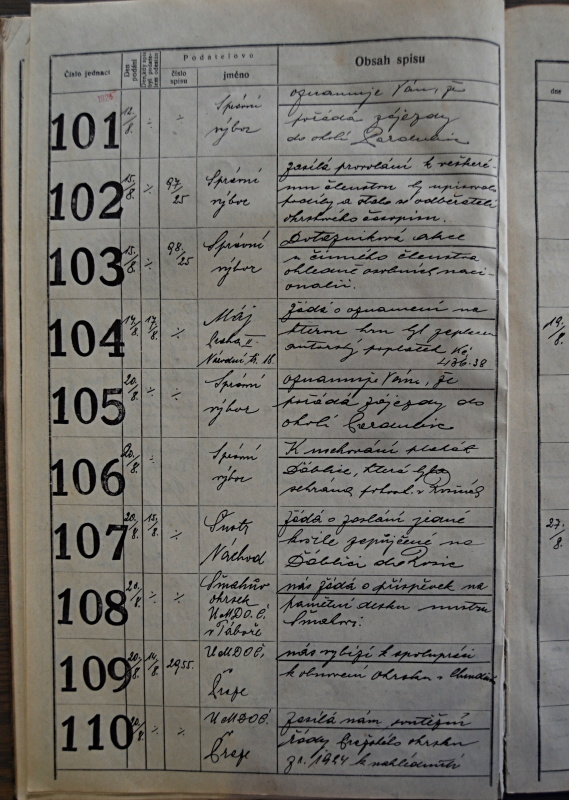 Číslo jednací
Den podání
Podatelovo
číslo spisu
jméno
Obsah spisu
dne
101
12./8.
÷
÷
Správní
výbor
oznamuje Vám, že
pořádá zájezdy
do okolí Pardubic
102
15./8.
÷
97/25
Správní
výbor
zasílá provolání k veškeré-
mu členstvu by upisovalo
a stalo se odběrateli
okrskového časopisu.
103
15./8.
÷
98/25
Správní
výbor
Dotazníková akce
u činného členstva
ohledně osobních naci-
onalií.
104
17./8.
17./8.
÷
Máj
Praha II.
Národní tř. 18.
žádá o oznámení na
kterou hru byl zaplacen
autorský poplatek Kč
436.38
19./8.
105
20./8.
÷
÷
Správní
výbor
oznamuje Vám, že
pořádá zájezdy do
okolí Pardubic
106
20./8.
÷
Správní
výbor
K uschování plakát
Ďáblice, která byla
v Rosicích
107
20./8.
15./8.
÷
Náchod
žádá o zaslání jedné
zapůjčené na
Ďáblici do Rosic
27./8.
108
20./8.
÷
÷
Šmahův
okrsek
ÚMDOČ.
v Táboře
nás žádá o příspěvek na
pamětní desku mistru
Šmahovi.
109
20./8.
14./8.
2955.
ÚMDOČ.
Praze
nás vybízí k spolupráci
k obnovení okrsku v
110
20./8.
÷
÷
ÚMDOČ.
Praze
zasílá nám
řády Pražského okrsku
z r. 1924 k nahlédnutí